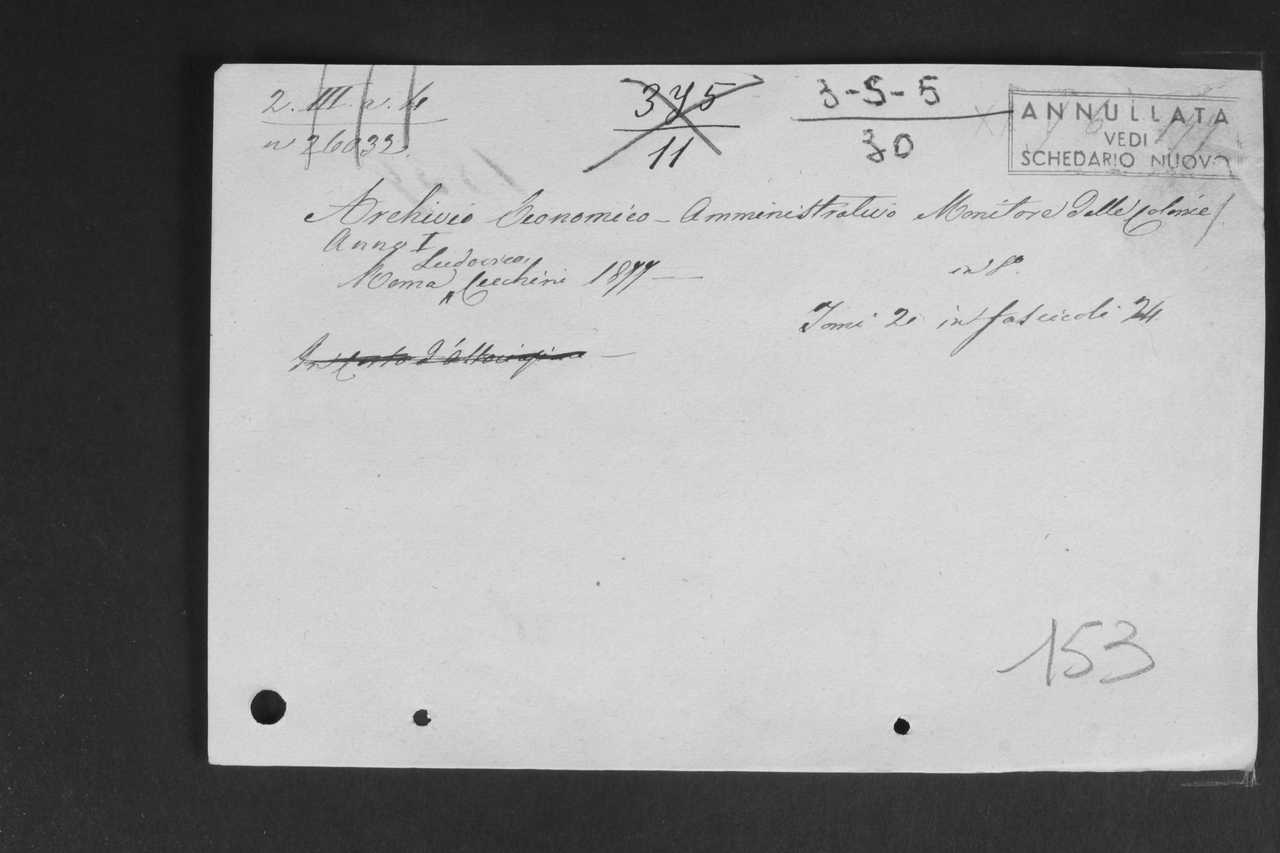 2. III. a. 4
n 26032.
375
11
3-5-5
30
ANNULLATA
VEDI
SCHEDARIO NUOVO
Archivio Economico - Amministrativo Monitore delle Colonie/.
Anno I
Roma Ludovico Cecchini 1877 — in 8°.
Tomi 2 in fascicoli 24
153